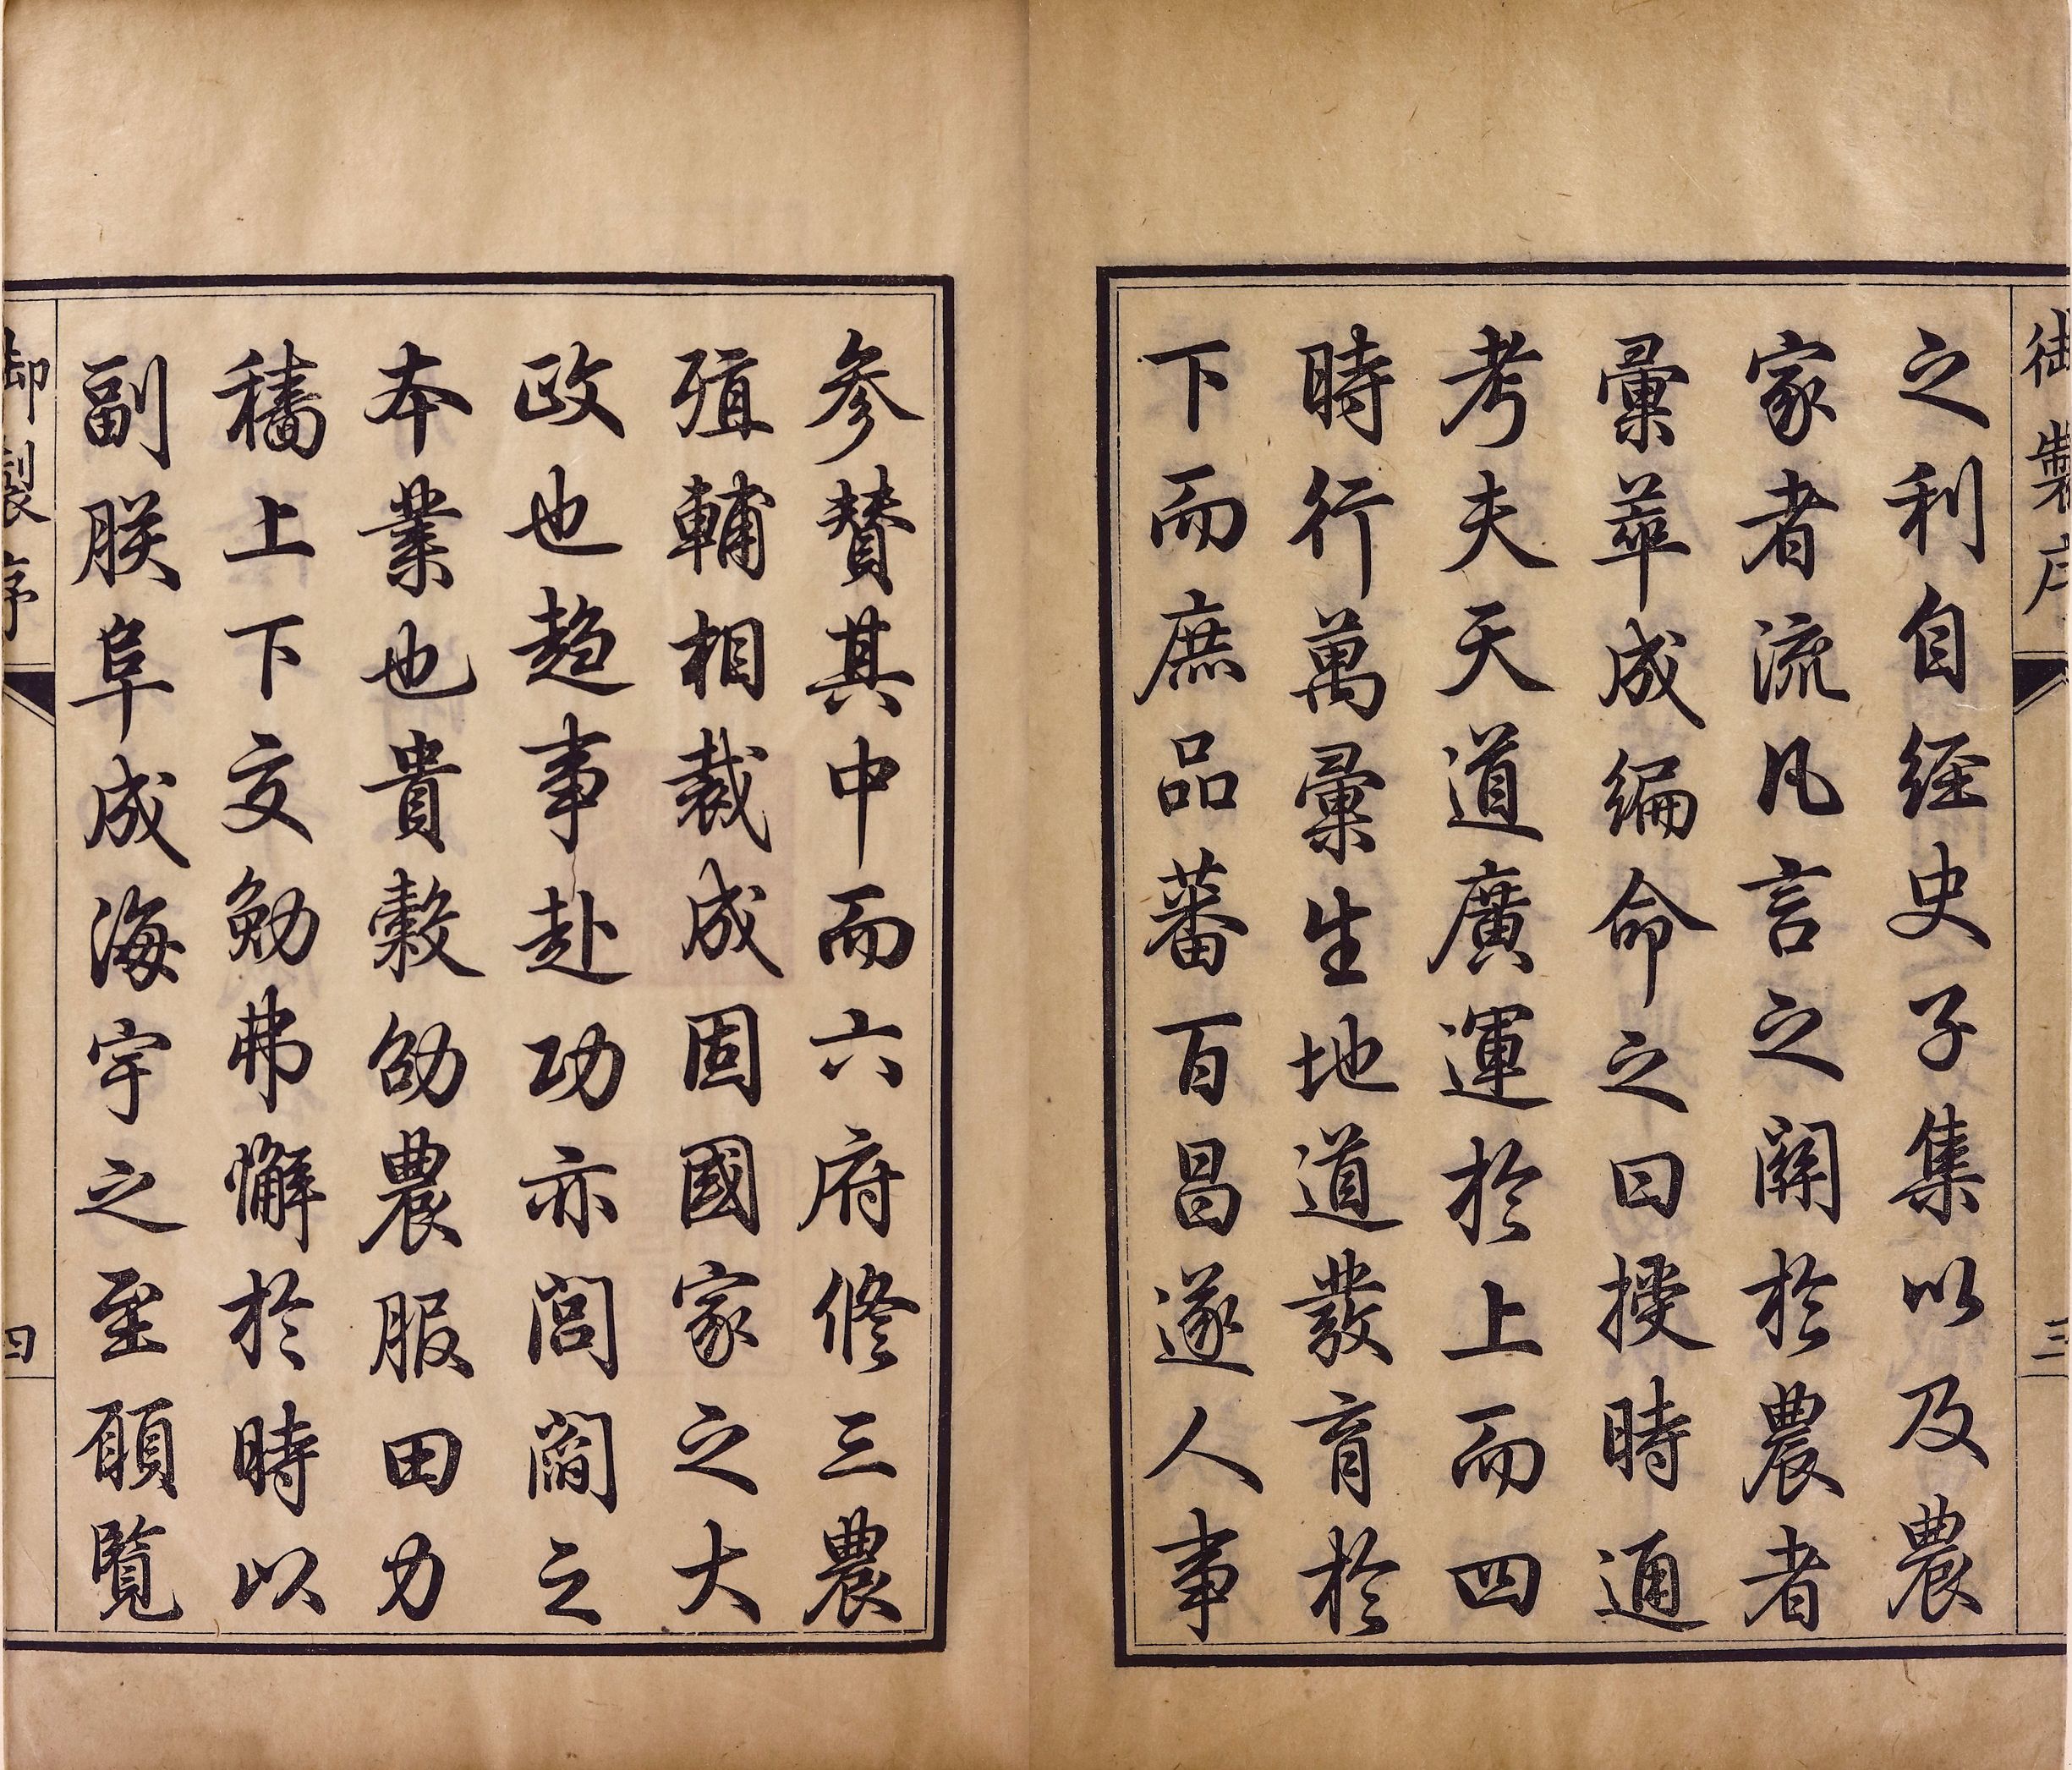 御製序
三
之利自經史子集以及農
家者流凡言之關於農者
彙萃成編命之曰授時通
考夫天道廣運於上而四
時行萬彙生地道發育於
下而庶品蕃百昌遂人事
參賛其中而六府修三農
殖輔相裁成固國家之大
政也趨事赴功亦閭閻之
本業也貴穀劭農服田力
穡上下交勉弗懈於時以
副朕阜成海宇之至願覽
御製序
四